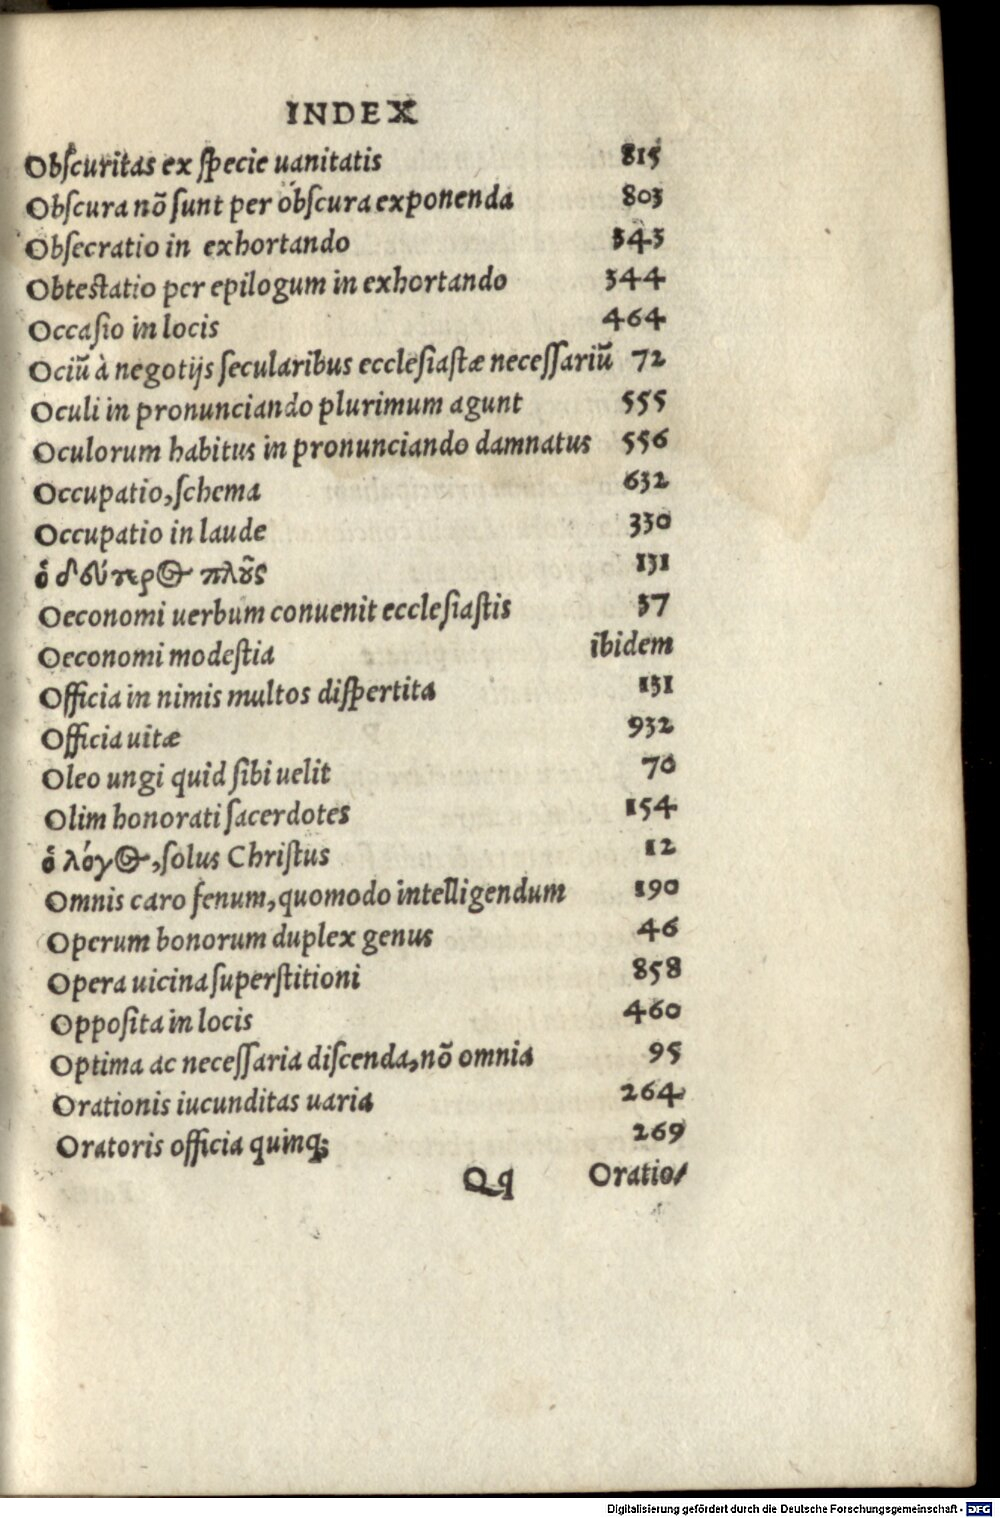 INDEX
Obſcuritas ex ſpecie uanitatis 815
Obſcura nõ ſunt per obſcura exponenda 803
Obſecratio in exhortando 343
Obteſtatio per epilogum in exhortando 344
Occaſio in locis 464
Ociũ à negotijs ſecularibus eccleſiaſtæ neceſſariũ 72
Oculi in pronunciando plurimum agunt 555
Oculorum habitus in pronunciando damnatus 556
Occupatio, ſchema 632
Occupatio in laude 330
ὁ δεύτερος πλοῦς 131
Oeconomi uerbum conuenit eccleſiaſtis 37
Oeconomi modeſtia ibidem
Officia in nimis multos diſpertita 131
Officia uitæ 932
Oleo ungi quid ſibi uelit 70
Olim honorati ſacerdotes 154
ὁ λόγος, ſolus Chriſtus 12
Omnis caro fenum, quomodo intelligendum 190
Operum bonorum duplex genus 46
Opera uicina ſuperſtitioni 858
Oppoſita in locis 460
Optima ac neceſſaria diſcenda, nõ omnia 95
Orationis iucunditas uaria 264
Oratoris officia quinq; 269
Qq Oratio/
Digitalisierung gefördert durch die Deutsche Forschungsgemeinschaft - DFG